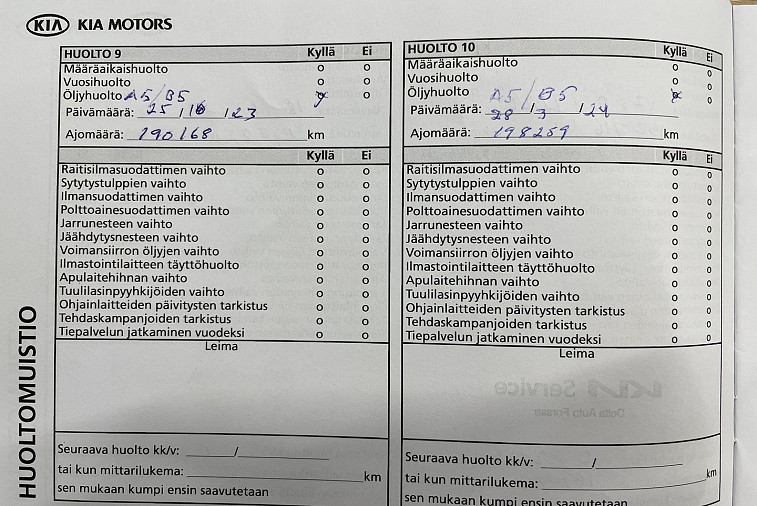 KIA KIA MOTORS
HUOLTOMUISTIO
HUOLTO 9 Kyllä Ei
Määräaikaishuolto o o
Vuosihuolto o o
Öljyhuolto A5/B5 o
Päivämäärä: 25 / 10 / 23
Ajomäärä: 190168 km
Kyllä Ei
Raitisilmasuodattimen vaihto o o
Sytytystulppien vaihto o o
Ilmansuodattimen vaihto o o
Polttoainesuodattimen vaihto o o
Jarrunesteen vaihto o o
Jäähdytysnesteen vaihto o o
Voimansiirron öljyjen vaihto o o
Ilmastointilaitteen täyttöhuolto o o
Apulaitehihnan vaihto o o
Tuulilasinpyyhkijöiden vaihto o o
Ohjainlaitteiden päivitysten tarkistus o o
Tehdaskampanjoiden tarkistus o o
Tiepalvelun jatkaminen vuodeksi o o
Leima
Seuraava huolto kk/v: /
tai kun mittarilukema: km
sen mukaan kumpi ensin saavutetaan
HUOLTO 10 Kyllä Ei
Määräaikaishuolto o o
Vuosihuolto o o
Öljyhuolto A5/B5 o
Päivämäärä: 28 / 3 / 24
Ajomäärä: 198259 km
Kyllä Ei
Raitisilmasuodattimen vaihto o o
Sytytystulppien vaihto o o
Ilmansuodattimen vaihto o o
Polttoainesuodattimen vaihto o o
Jarrunesteen vaihto o o
Jäähdytysnesteen vaihto o o
Voimansiirron öljyjen vaihto o o
Ilmastointilaitteen täyttöhuolto o o
Apulaitehihnan vaihto o o
Tuulilasinpyyhkijöiden vaihto o o
Ohjainlaitteiden päivitysten tarkistus o o
Tehdaskampanjoiden tarkistus o o
Tiepalvelun jatkaminen vuodeksi o o
Leima
KIA Service
Delta Auto Forssa
Seuraava huolto kk/v: /
tai kun mittarilukema: km
sen mukaan kumpi ensin saavutetaan